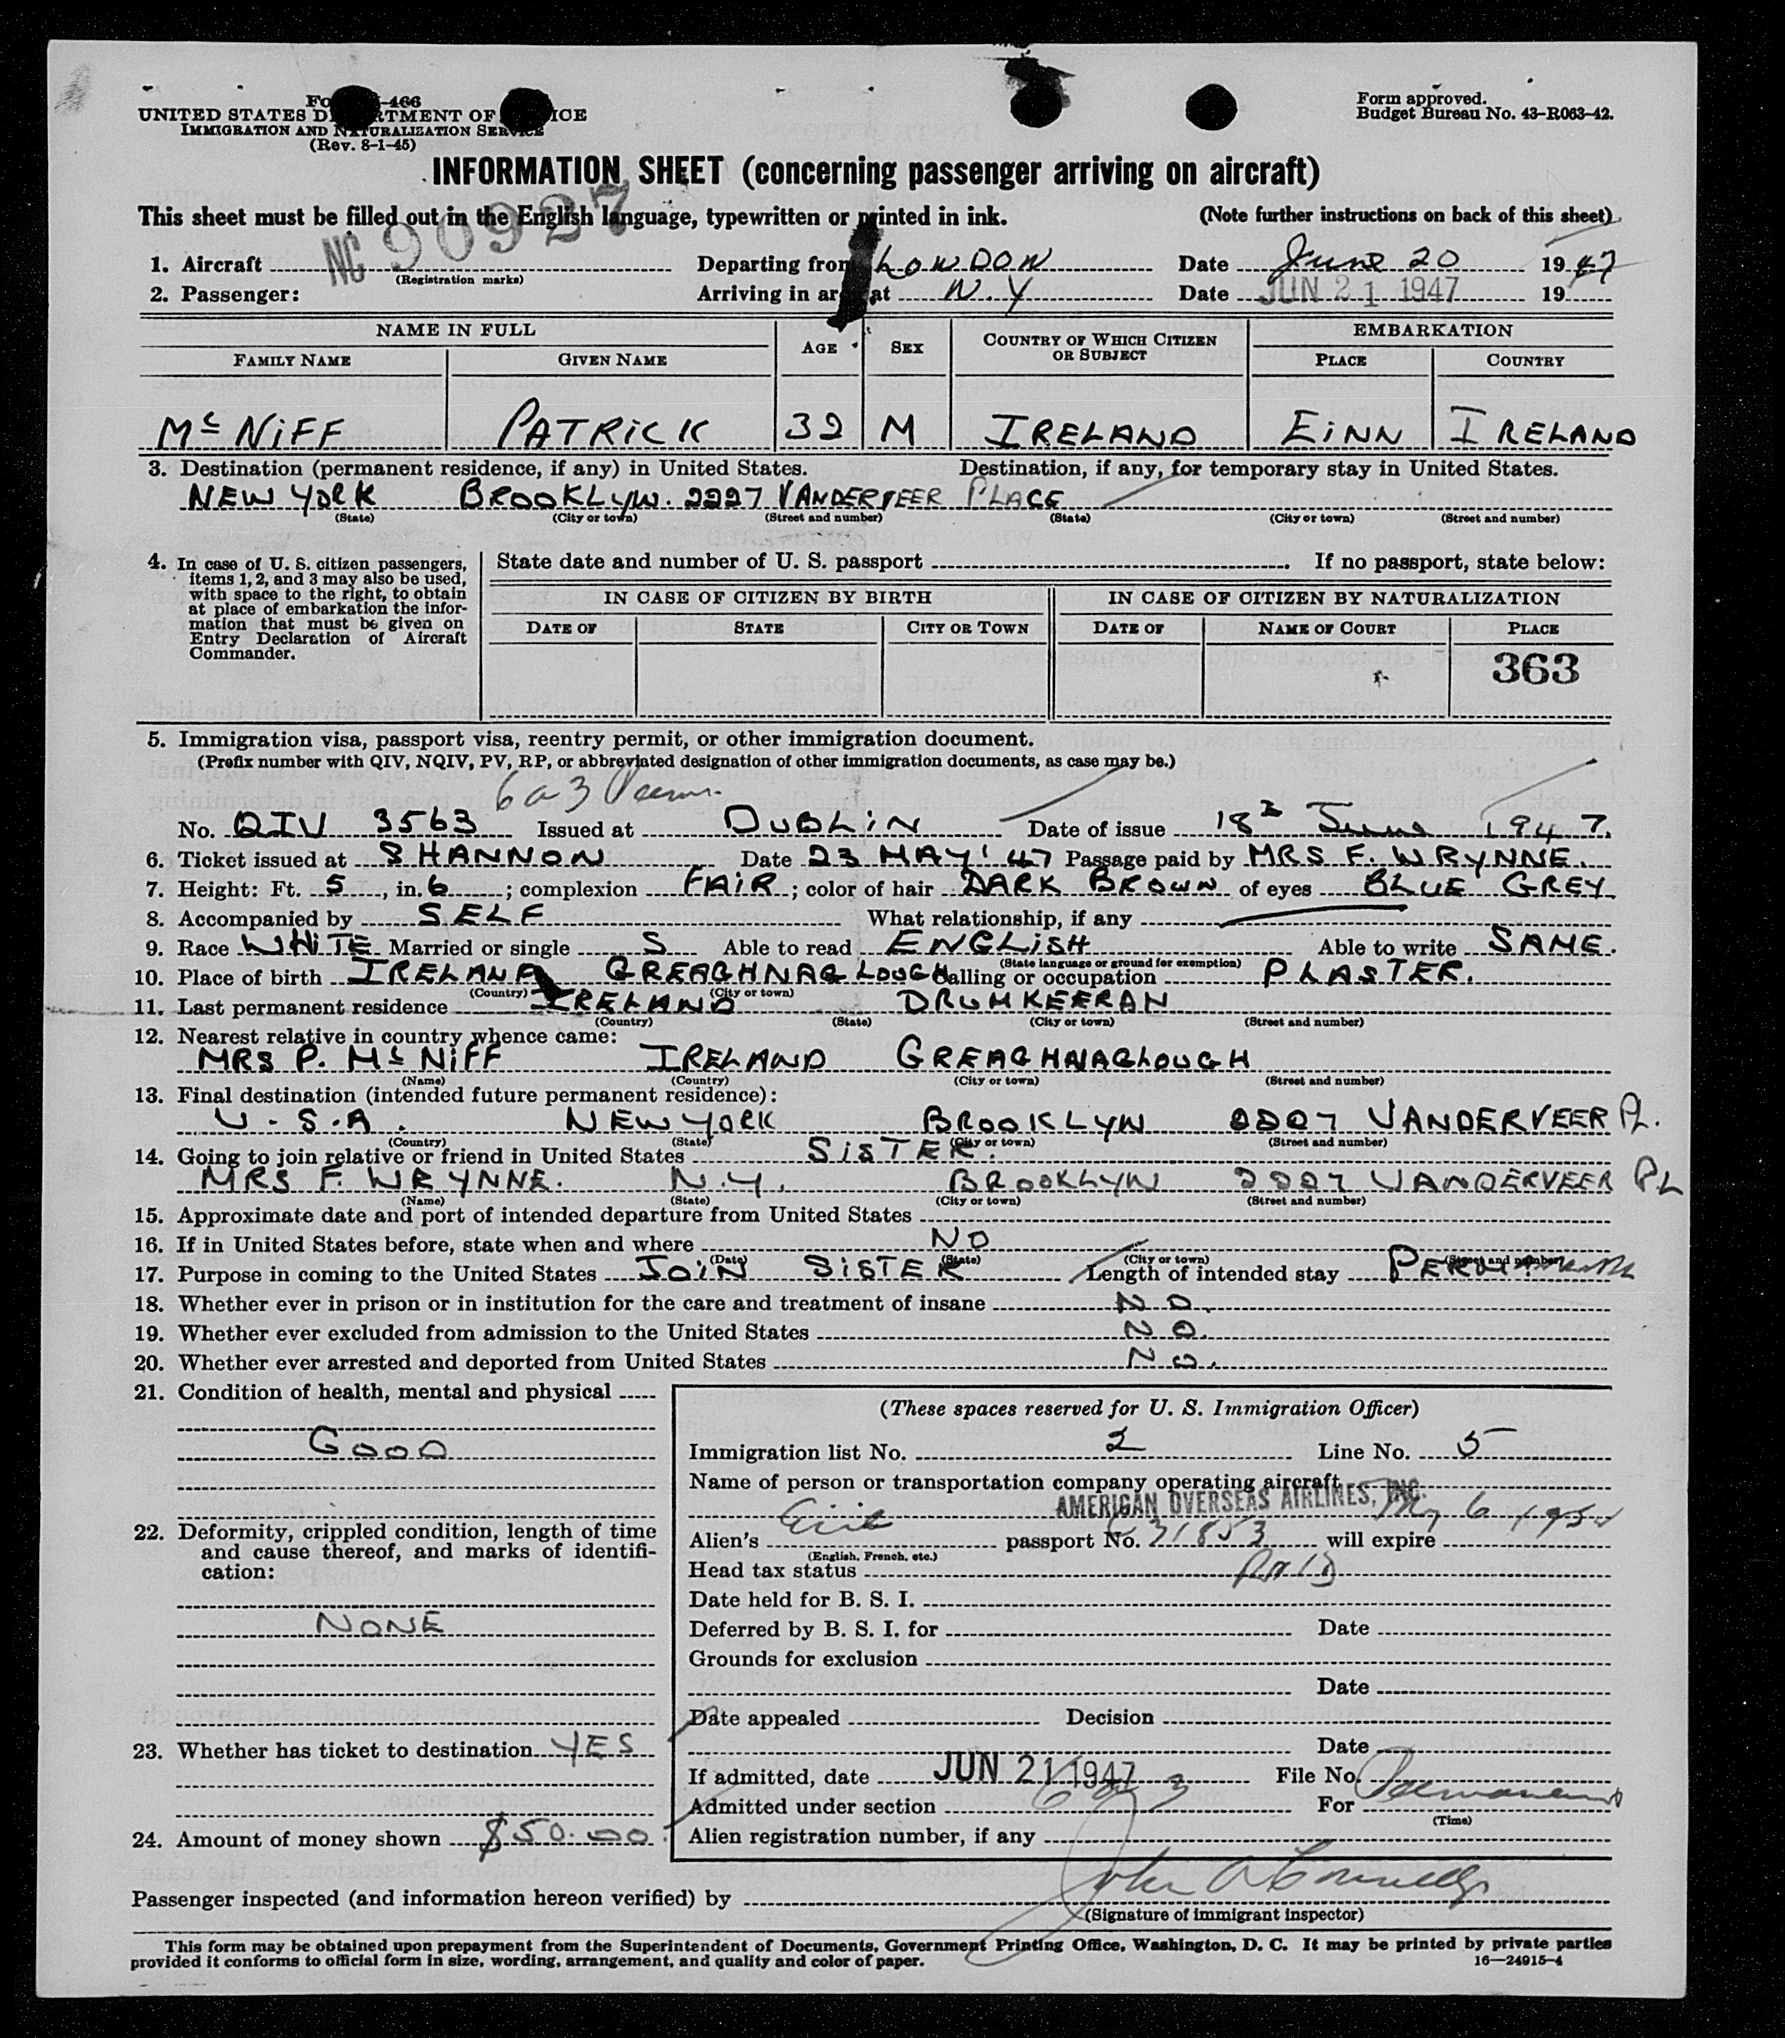 Form -466
UNITED STATES DEPARTMENT OF JUSTICE
IMMIGRATION AND NATURALIZATION SERVICE
(Rev. 8-1-45)
Form approved.
Budget Bureau No. 43-R063-42.
INFORMATION SHEET (concerning passenger arriving on aircraft)
This sheet must be filled out in the English language, typewritten or printed in ink. (Note further instructions on back of this sheet)
1. Aircraft NC 90927 Departing from LONDON Date June 20 1947
(Registration marks)
2. Passenger: Arriving in at N.Y Date JUN 21 1947 19
NAME IN FULL AGE SEX COUNTRY OF WHICH CITIZEN OR SUBJECT EMBARKATION
FAMILY NAME GIVEN NAME PLACE COUNTRY
McNIFF PATRICK 32 M IRELAND EINN IRELAND
3. Destination (permanent residence, if any) in United States. Destination, if any, for temporary stay in United States.
NEW YORK BROOKLYN. 2227 VANDERVEER PLACE
(State) (City or town) (Street and number) (State) (City or town) (Street and number)
4. In case of U. S. citizen passengers, items 1, 2, and 3 may also be used, with space to the right, to obtain at place of embarkation the information that must be given on Entry Declaration of Aircraft Commander.
State date and number of U. S. passport . If no passport, state below:
IN CASE OF CITIZEN BY BIRTH IN CASE OF CITIZEN BY NATURALIZATION
DATE OF STATE CITY OR TOWN DATE OF NAME OF COURT PLACE
363
5. Immigration visa, passport visa, reentry permit, or other immigration document.
(Prefix number with QIV, NQIV, PV, RP, or abbreviated designation of other immigration documents, as case may be.)
6 a 3 Perm.
No. QIV 3563 Issued at DUBLIN Date of issue 18 June 1947.
6. Ticket issued at SHANNON Date 23 MAY '47 Passage paid by MRS F. WRYNNE.
7. Height: Ft. 5, in. 6; complexion FAIR; color of hair DARK BROWN of eyes BLUE GREY
8. Accompanied by SELF What relationship, if any
9. Race WHITE Married or single S Able to read ENGLISH Able to write SAME.
(State language or ground for exemption)
10. Place of birth IRELAND GREAGHNAGLOUGH Calling or occupation PLASTER.
(Country) (City or town)
11. Last permanent residence IRELAND DRUMKEERAN
(Country) (State) (City or town) (Street and number)
12. Nearest relative in country whence came:
MRS P. McNIFF IRELAND GREAGHNAGLOUGH
(Name) (Country) (City or town) (Street and number)
13. Final destination (intended future permanent residence):
U.S.A. NEW YORK BROOKLYN 2227 VANDERVEER PL.
(Country) (State) (City or town) (Street and number)
14. Going to join relative or friend in United States SISTER.
MRS F. WRYNNE. N.Y. BROOKLYN 2227 VANDERVEER PL
(Name) (State) (City or town) (Street and number)
15. Approximate date and port of intended departure from United States
16. If in United States before, state when and where NO
(Date) (State) (City or town) (Street and number)
17. Purpose in coming to the United States JOIN SISTER Length of intended stay PERMANENT
18. Whether ever in prison or in institution for the care and treatment of insane NO.
19. Whether ever excluded from admission to the United States NO.
20. Whether ever arrested and deported from United States NO.
21. Condition of health, mental and physical
GOOD
22. Deformity, crippled condition, length of time and cause thereof, and marks of identification:
NONE
23. Whether has ticket to destination YES
24. Amount of money shown $50.00.
(These spaces reserved for U. S. Immigration Officer)
Immigration list No. 2 Line No. 5
Name of person or transportation company operating aircraft
AMERICAN OVERSEAS AIRLINES, INC.
Alien's Eire passport No. 31853 will expire 6 195
(English, French, etc.)
Head tax status PAID
Date held for B. S. I.
Deferred by B. S. I. for Date
Grounds for exclusion
Date
Date appealed Decision
Date
If admitted, date JUN 21 1947 File No.
Admitted under section 6 a 3 For Permanent
(Time)
Alien registration number, if any
Passenger inspected (and information hereon verified) by John A Connelly
(Signature of immigrant inspector)
This form may be obtained upon prepayment from the Superintendent of Documents, Government Printing Office, Washington, D. C. It may be printed by private parties
provided it conforms to official form in size, wording, arrangement, and quality and color of paper. 16—24915-4